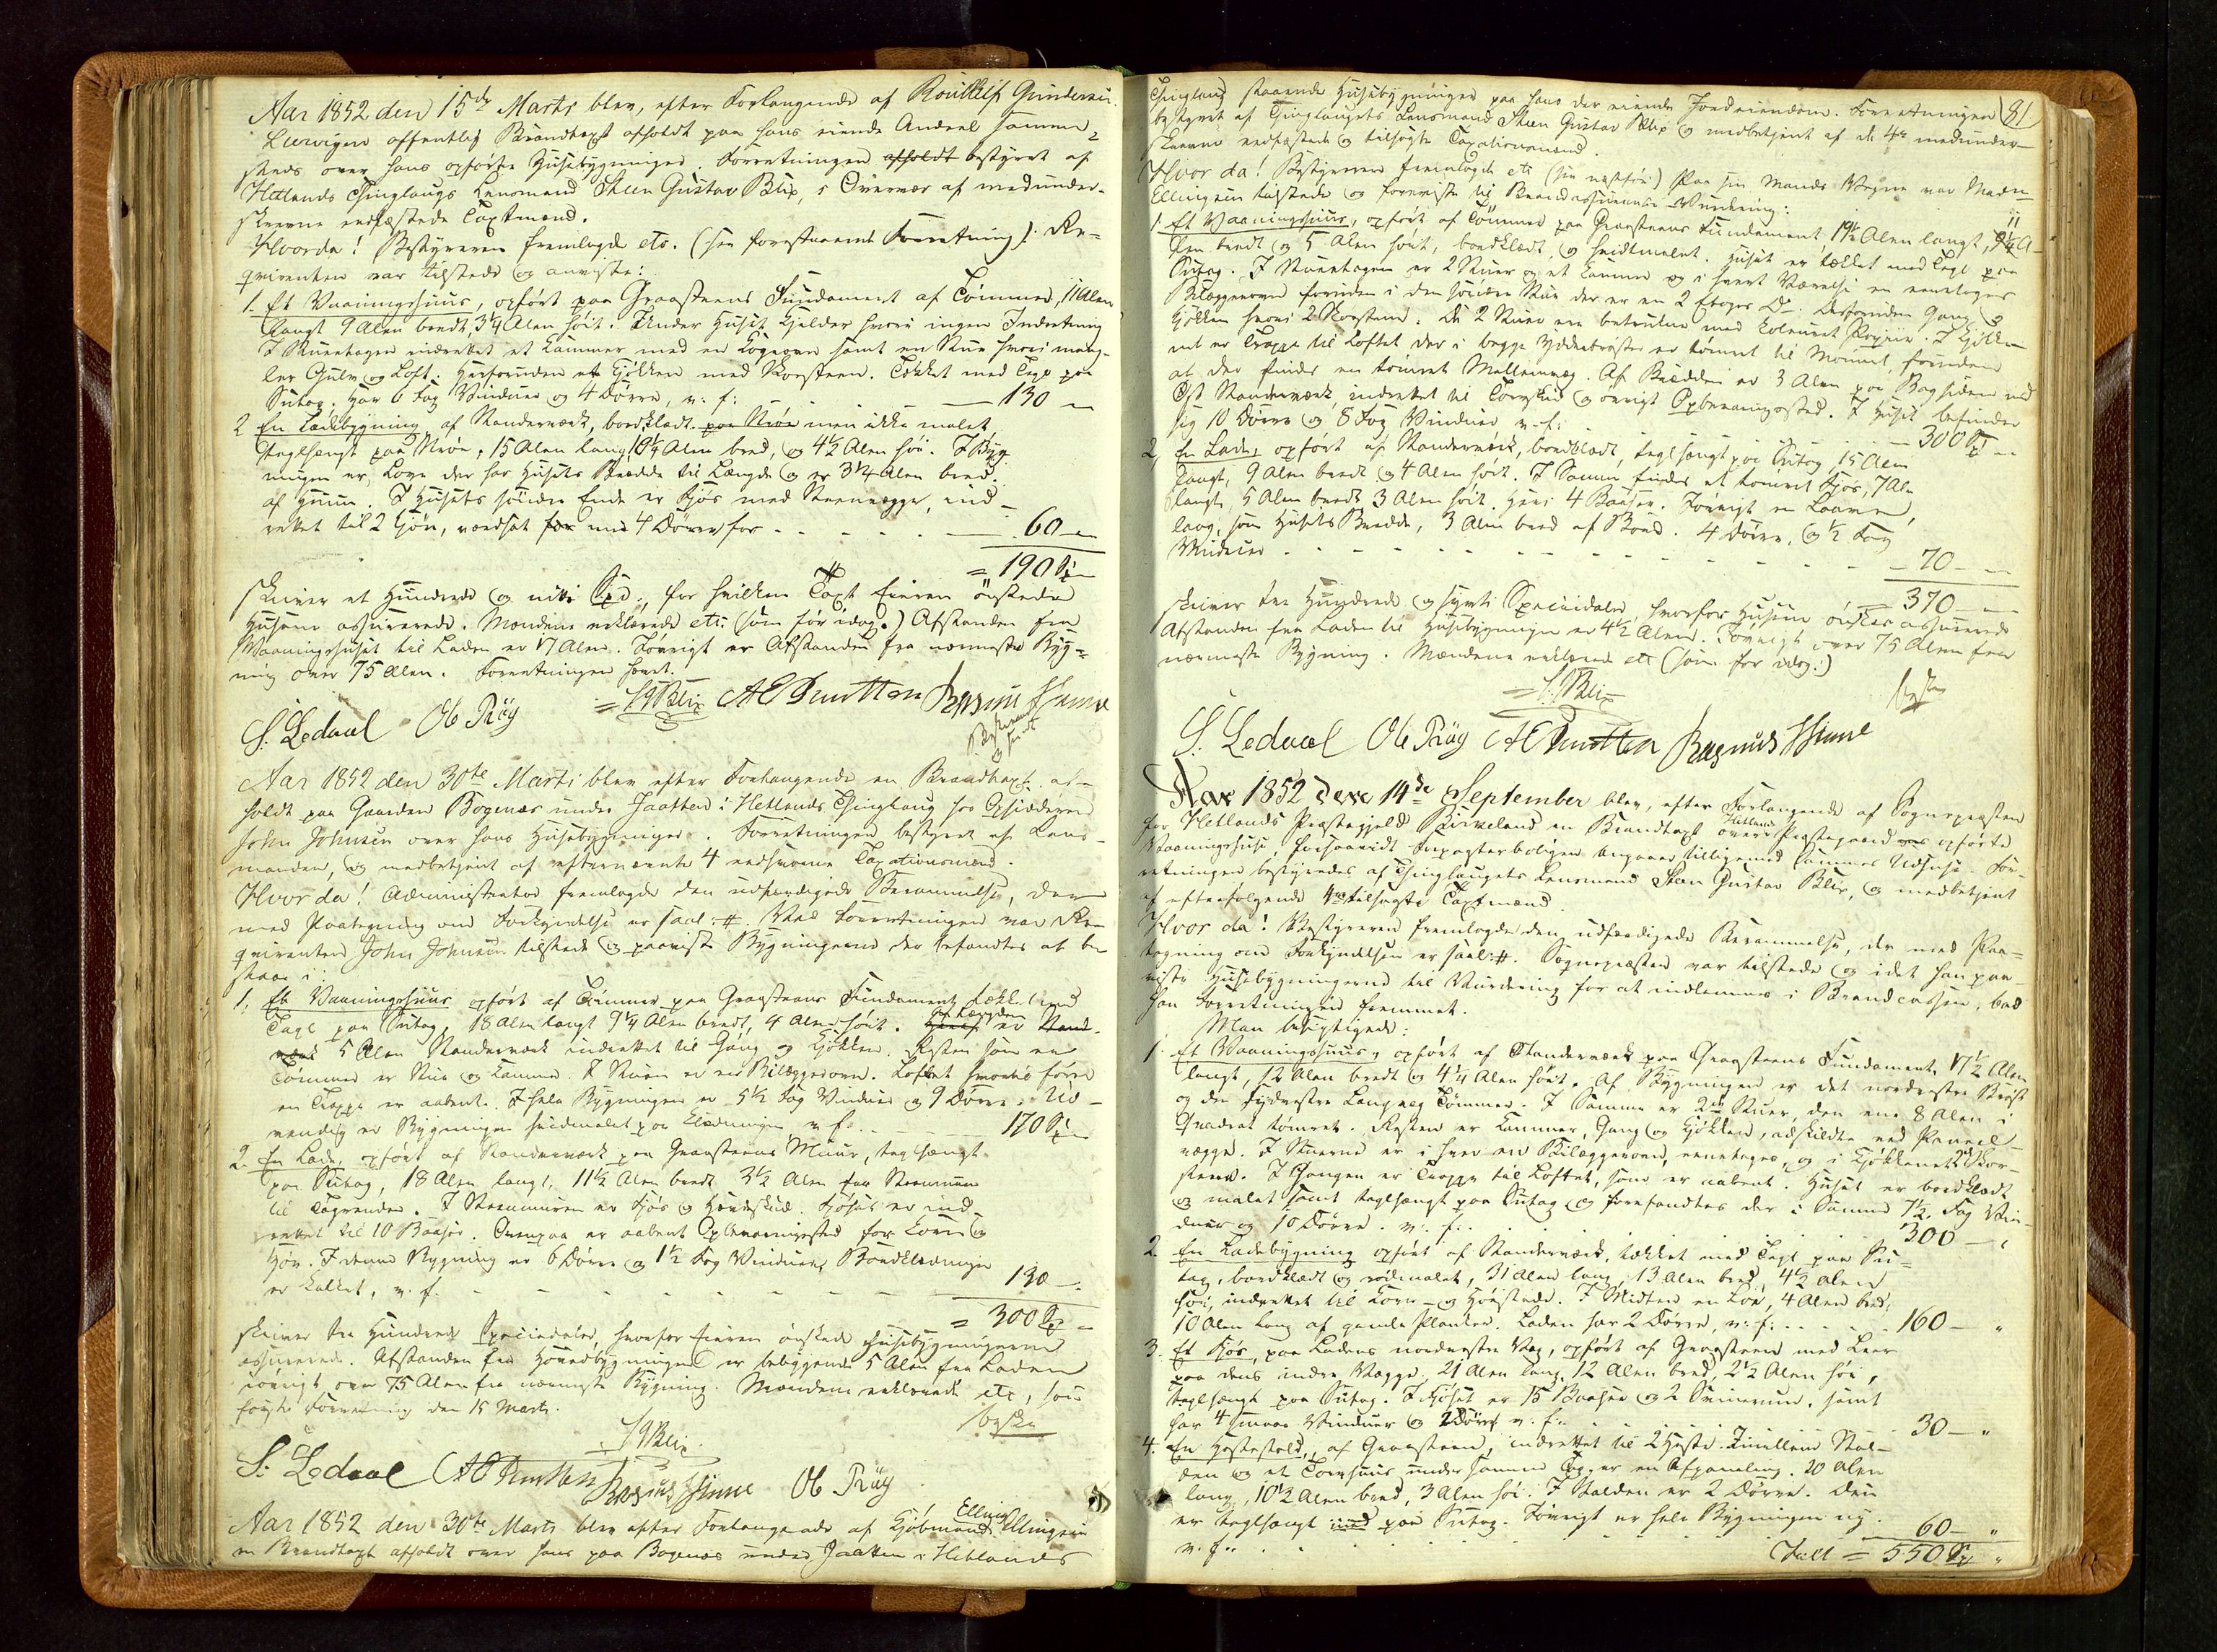 Aar 1852 den 15de Marts blev, efter Forlangende af Gundersen
offentlig Brandtaxt afholdt paa hans eiende Andeel samme-
steds over hans opførte Huusebygninger. Forretningen afholdt bestyret af
Hetlands Thinglaugs Lensmand Steen Gustav Blix, i Overvær af medunder-
skrevne eedfæstede Taxtmænd.
Hvorda! Bestyreren fremlagde etc. (see foranstaaende Forretning). Re-
qvirenten var tilstede og anviste:
1. Et Vaaningshuus, opført paa Graasteens Fundament af Tømmer, 11 Alen
langt 9 Alen bredt, 3¼ Alen høit. Under Huset Kjelder hvori ingen Indretning
I Stueetagen indrettet et Kammer med en Kogeovn samt en Stue hvori mang-
ler Gulv og Loft. Herforuden et Kjøkken med Skorsteen. Tækket med Tagl paa
Sutag. Har 6 Fag Vinduer og 4 Dørre, v: f: 130 —
2 En Ladebygning af Standerværk, bordklædt paa Stræe men ikke malet,
teglhængt paa Stræe, 15 Alen lang, 9¼ Alen bred, og 4½ Alen høi. I Byg-
ningen er Love der har Husets Bredde til Længde og er 3¼ Alen bred.
af Huun. I Husets søndre Ende er Fjøs med Steenvægge, ind-
rettet til 2 Kjør, værdsat for med 4 Dørre for 60 —
= 190 Spd
skriver et Hundrede og nitti Spd., for hvilken Taxt Eieren ønskede
Husene assurerede. Mændene erklærede etc: (som før idag.) Afstanden fra
Vaaningshuset til Laden er 17 Alen. Iøvrigt er Afstanden fra nærmeste Byg-
ning over 75 Alen. Forretningen sluttet.
S. Ledaal Ole Prüg S G Blix A E Knutten Rasmus Hinne
Aar 1852 den 30te Marts blev efter Forlangende en Brandtaxt af-
holdt paa Gaarden Bogenæs under Jaatten i Hetlands Thinglaug hos Opsidderen
John Johnsen over hans Huusebygninger. Forretningen bestyret af Lens-
manden, og medbetjent af efternævnte 4 eedsvorne Taxationsmænd.
Hvor da! Administrator fremlagde den udfærdigede Berammelse, der
med Paategning om Forkyndelse er saal: #. Ved Forretningen var Re-
qvirenten John Johnsen tilstede og paaviste Bygningerne der befandtes at be-
staae i:
1, Et Vaaningshuus opført af Tømmer paa Graasteens Fundament, tækket med
Tagl paa Sutag, 18 Alen langt 9¼ Alen bredt, 4 Alen høit. af Længden er Stand-
værk 5 Alen Standerværk indrettet til Gang og Kjøkken. Resten som er
Tømmer er Stue og Kammer. I Stuen er en Bilæggerovn. Loftet hvortil fører
en Trappe er aabent. I hele Bygningen er 5½ Fag Vinduer og 9 Dørre. Ud-
vendig er Bygningen hvidmalet paa Klædningen v. f: 170 Sp
2. En Lade, opført af Standerværk paa Graasteens Muur, taglhængt
paa Sutag, 18 Alen langt, 11½ Alen bredt 3½ Alen fra Steenmuren
til Tagrenden. I Steenmuren er Fjøs og Hønseskuur. Fjøset er ind-
rettet til 10 Baaser. Ovenpaa er aabent Opbevaringssted for Korn og
Høe. I denne Bygning er 6 Dørre og 1½ Fag Vinduer, Bordklædningen
er kalket, v. f. 130 —
= 300 Sp —
skriver tre Hundrede Speciedaler, hvorfor Eieren ønskede Huusebygningerne
assurerede. Afstanden fra Hovedbygningen er beliggende 5 Alen fra Laden
iøvrigt over 75 Alen fra nærmeste Bygning. Mændene erklærede etc, som
første Forretning den 15 Marts.
S G Blix
S. Ledaal A E Knutten Rasmus Hinne Ole Prüg
Aar 1852 den 30te Marts blev efter Forlangende af Kjøbmand Elling Ellingsen
en Brandtaxt afholdt over hans paa Bogenæs under Jaatten i Hetlands
81
Thinglaug staaende Huusebygninger paa hans der eiende Jordeiendom. Forretningen
bestyret af Thinglaugets Lensmand Steen Gustav Blix og medbetjent af de 4re medunder-
skrevne eedfæstede og tilsagte Taxationsmænd.
Hvor da! Bestyreren fremlagde etc (see næstfør.) Paa sin Mands Vegne var Mad.
Ellingsen tilstede og foreviste til Brandassurance-Vurdering:
1. Et Vaaningshuus, opført af Tømmer paa Graasteens Fundament 19½ Alen langt, 9¼ A-
len bredt og 5 Alen høit, bordklædt, og hvidtmalet. Huset er tækket med Tagl paa
Sutag. I Stueetagen er 2 Stuer og et Kammer og i hvert Værelse en eenetages
Bilæggerovn foruden i den søndre Stue der er en 2 Etages Do. Desforuden Gang og
Kjøkken hvori 2 Skorsteene. De 2 Stuer ere betrukne med couleurt Papiir. I Kjøkke-
net er Trappe til Loftet der i begge Yddebrøster er tømret til Mønnet, foruden
at der findes en tømret Mellemvæg. Af Bredden er 3 Alen paa Bagsiden ved
Øst Standerværk indrettet til Torvskuur og øvrigt Opbevaringssted. I Huset befinder
sig 10 Dørre og 8 Fag Vinduer v. f: 300 Sp —
2, En Lade, opført af Standerværk, bordklædt, taglhængt paa Sutag, 15 Alen
langt, 9 Alen bredt og 4 Alen høit. I Samme findes et tømret Fjøs, 7 Al.
langt, 5 Alen bredt 3 Alen høit. Heri 4 Baaser. Iøvrigt en Laave,
lang, som Husets Bredde, 3 Alen bred af Bord. 4 Dørre, og ½ Fag
Vinduer 70 —
= 370 —
skriver tre Hundrede og syvti Speciedaler, hvorfor Husene ønskes assurerede
Afstanden fra Laden til Huusebygningen er 4½ Alen. Iøvrigt over 75 Alen fra
nærmeste Bygning. Mændene erklærede etc (som før idag.)
S G Blix
S. Ledaal Ole Prüg A E Knutten Rasmus Hinne
Aar 1852 den 14de September blev, efter Forlangende af Sognepræsten
for Hetlands Præstegjeld Kirkeland en Brandtaxt over Hetland Præstegaard opførte
Vaaningshuse, forsaavidt Forpagterboligen angaaer tilligemed sammes Udhuse. For-
retningen bestyredes af Thinglaugets Lensmand Steen Gustav Blix, og medbetjent
af efterfølgende 4re tilsagte Taxtmænd.
Hvor da! Bestyreren fremlagde den udfærdigede Berammelse, der med Paa-
tegning om Forkyndelsen er saal: #. Sognepræsten var tilstede og idet han paa-
viste Huusebygningerne til Vurdering for at indlemmes i Brandcassen, bad
han Forretningen fremmet.
Man besigtigede:
1. Et Vaaningshuus, opført af Standerværk paa Graasteens Fundament, 17½ Alen
langt, 12 Alen bredt og 4¼ Alen høit. Af Bygningen er det nordostre Brøst
og den sydvestre Langvæg Tømmer. I Samme er 2de Stuer, den ene 8 Alen i
Qvadrat tømret. Resten er Kammer, Gang og Kjøkken, adskildte ved Paneel-
vægge. I Stuerne er i hver en Bilæggerovn, eenetages, og i Kjøkkenet 2de Skor-
steene. I Gangen er Trappe til Loftet, som er aabent. Huset er bordklædt
og malet samt taglhængt paa Sutag og forefandtes der i Samme 7½ Fag Vin-
duer og 10 Dørre. v. f: 300 —
2. En Ladebygning opført af Standerværk, tækket med Tagl paa Su-
tag, bordklædt og rødmalet, 31 Alen lang, 13 Alen bred, 4½ Alen
høi, indrettet til Korn- og Høestade. I Midten en Loe, 4 Alen bred,
10 Alen lang af gamle Planker. Laden har 2 Dørre, v: f: 160 — "
3. Et Fjøs, paa Ladens nordvestre Væg, opført af Graasteen med Leer
paa dens indre Vægge, 21 Alen lang, 12 Alen bred, 2½ Alen høi,
taglhængt paa Sutag. I Fjøset er 15 Baaser og 2 Svinerum, samt
har 4 smaae Vinduer og 2 Dørre v: f: 30 — "
4. En Hestestald, af Graasteen, indrettet til 2 Heste. Imellem Stal-
den og et Torvhuus under samme Tag, er en Afpaneling. 20 Alen
lang, 10½ Alen bred, 3 Alen høi. I Stalden er 2 Dørre. Den
er taglhængt med paa Sutag. Iøvrigt er hele Bygningen ny.
v. f. 60 — "
Ialt = 550 Sp "